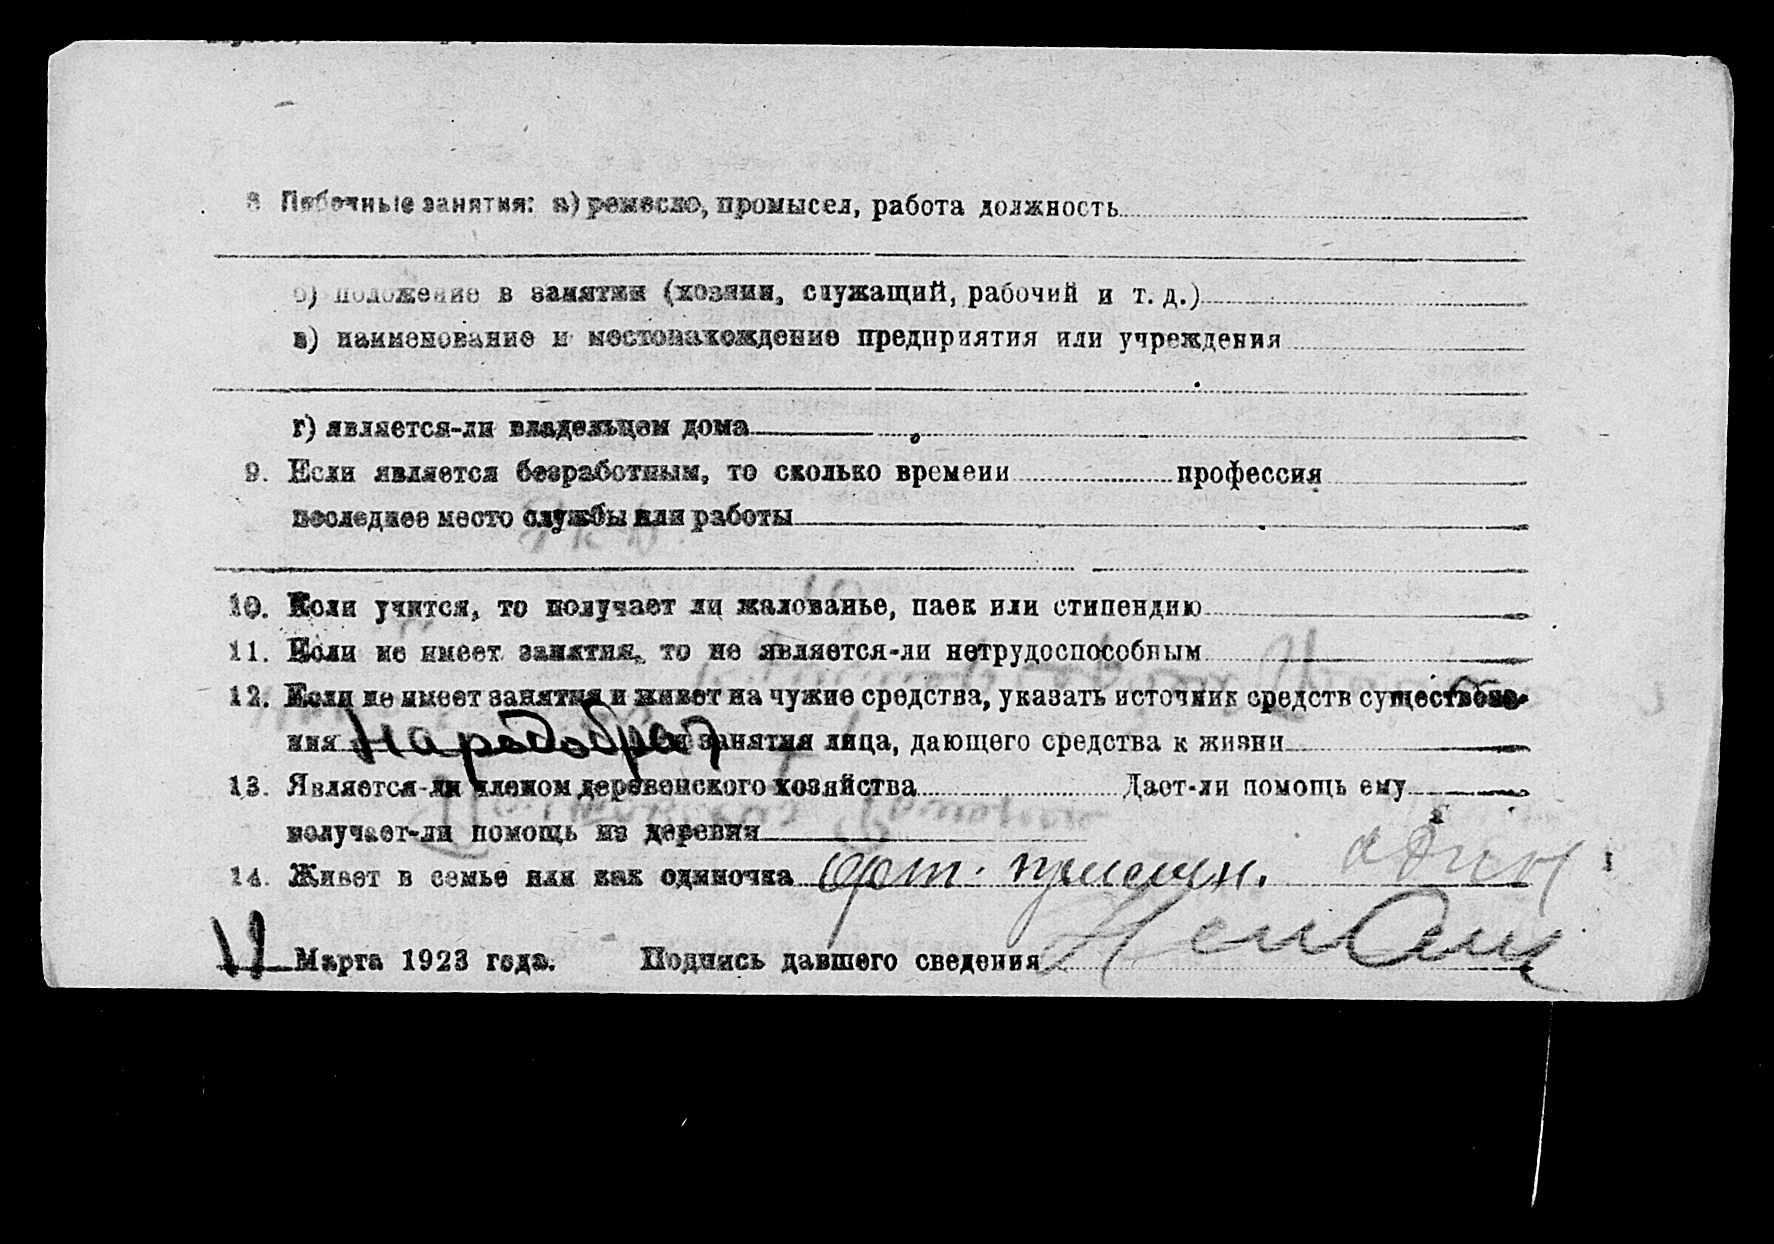 8 Побочные занятия: а) ремесло, промысел, работа должность
б) положение в занятии (хозяин, служащий, рабочий и т. д.)
в) наименование и местонахождение предприятия или учреждения
г) является-ли владельцем дома
9. Если является безработным, то сколько времени профессия
последнее место службы или работы
10. Если учится, то получает ли жалованье, паек или стипендию
11. Если не имеет занятия, то не является-ли нетрудоспособным
12. Если не имеет занятия и живет на чужие средства, указать источник средств существова-
ния Наробраз занятия лица, дающего средства к жизни
13. Является-ли членом деревенского хозяйства Дает-ли помощь ему
получает-ли помощь из деревни
14. Живет в семье или как одиночка один
Марта 1923 года. Подпись давшего сведения